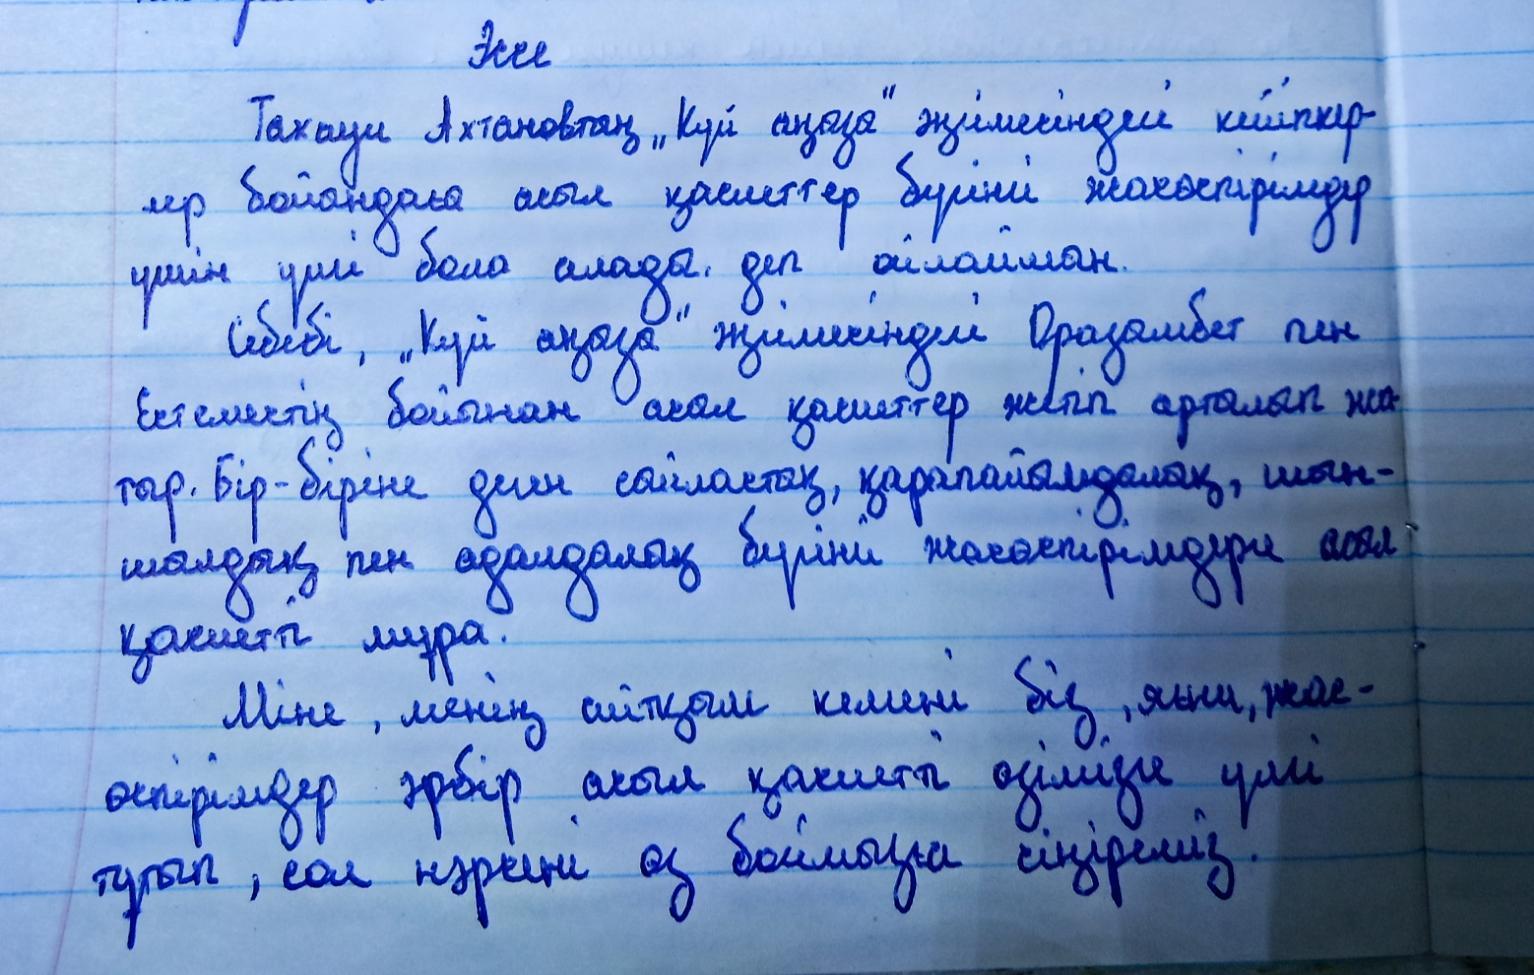 Эссе
Тахауи Ахтановтың „Күй аңызы" әңгімесіндегі кейіпкер-
лер бойындағы асыл қасиеттер бүгінгі жасөспірімдер
үшін үлгі бола алады. деп ойлаймын.
Себебі, „Күй аңызы" әңгімесіндегі Оразымбет пен
Естеместің бойынан асыл қасиеттер жетіп артылып жа-
тыр. Бір-біріне деген сыйластық, қарапайымдылық, шын-
шылдық пен адалдылық бүгінгі жасөспірімдерге асыл
қасиетті мұра.
Міне, менің айтқым келгені біз, яғни, жас-
өспірімдер әрбір асыл қасиетті өзімізге үлгі
тұтып, сол нәрсені өз боймызға сіңіреміз.